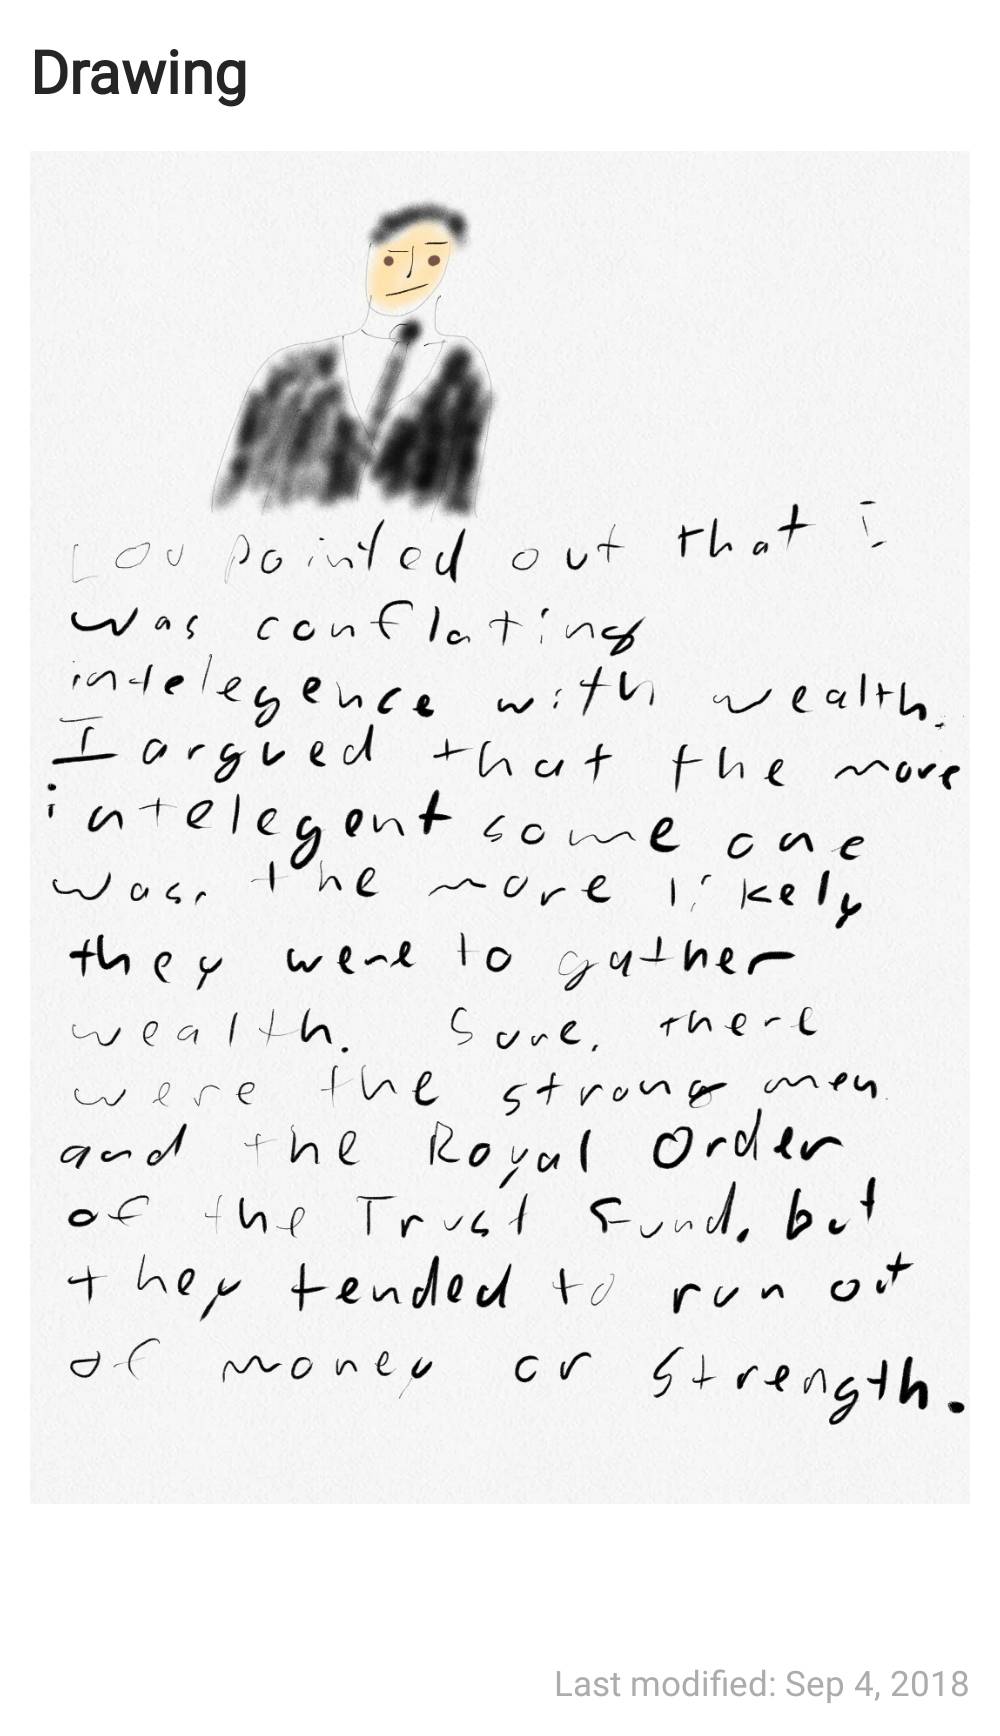 Drawing
Lou pointed out that I
was conflating
intelegence with wealth.
I argued that the more
intelegent some one
was, the more likely
they were to gather
wealth. Sure, there
were the strong men
and the Royal Order
of the Trust Fund, but
they tended to run out
of money or strength.
Last modified: Sep 4, 2018